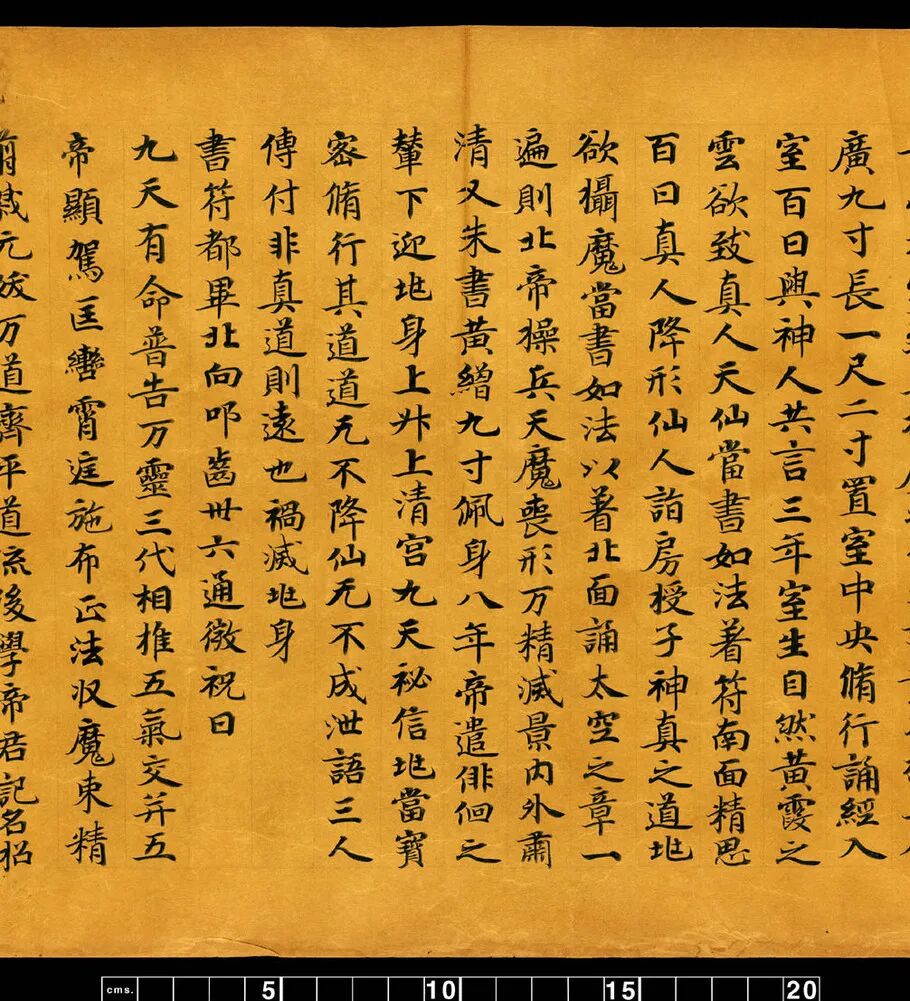 廣九寸長一尺二寸置室中央脩行誦經入
室百日與神人共言三年室生自然黃霞之
雲欲致真人天仙當書如法著符南面精思
百日真人降形仙人詣房授子神真之道地
欲攝魔當書如法以著北面誦太空之章一
遍則北帝操兵天魔喪形万精滅景内外肅
清又朱書黃繒九寸佩身八年帝遣徘徊之
輦下迎地身上升上清宮九天祕信地當寶
密脩行其道道无不降仙无不成泄語三人
傳付非真道則遠也禍滅地身
書符都畢北向叩齒卅六通微祝曰
九天有命普告万靈三代相推五氣交并五
帝顯駕匡轡霄庭施布正法収魔束精
万道齊平道流後學帝君記名
cms. 5 10 15 20